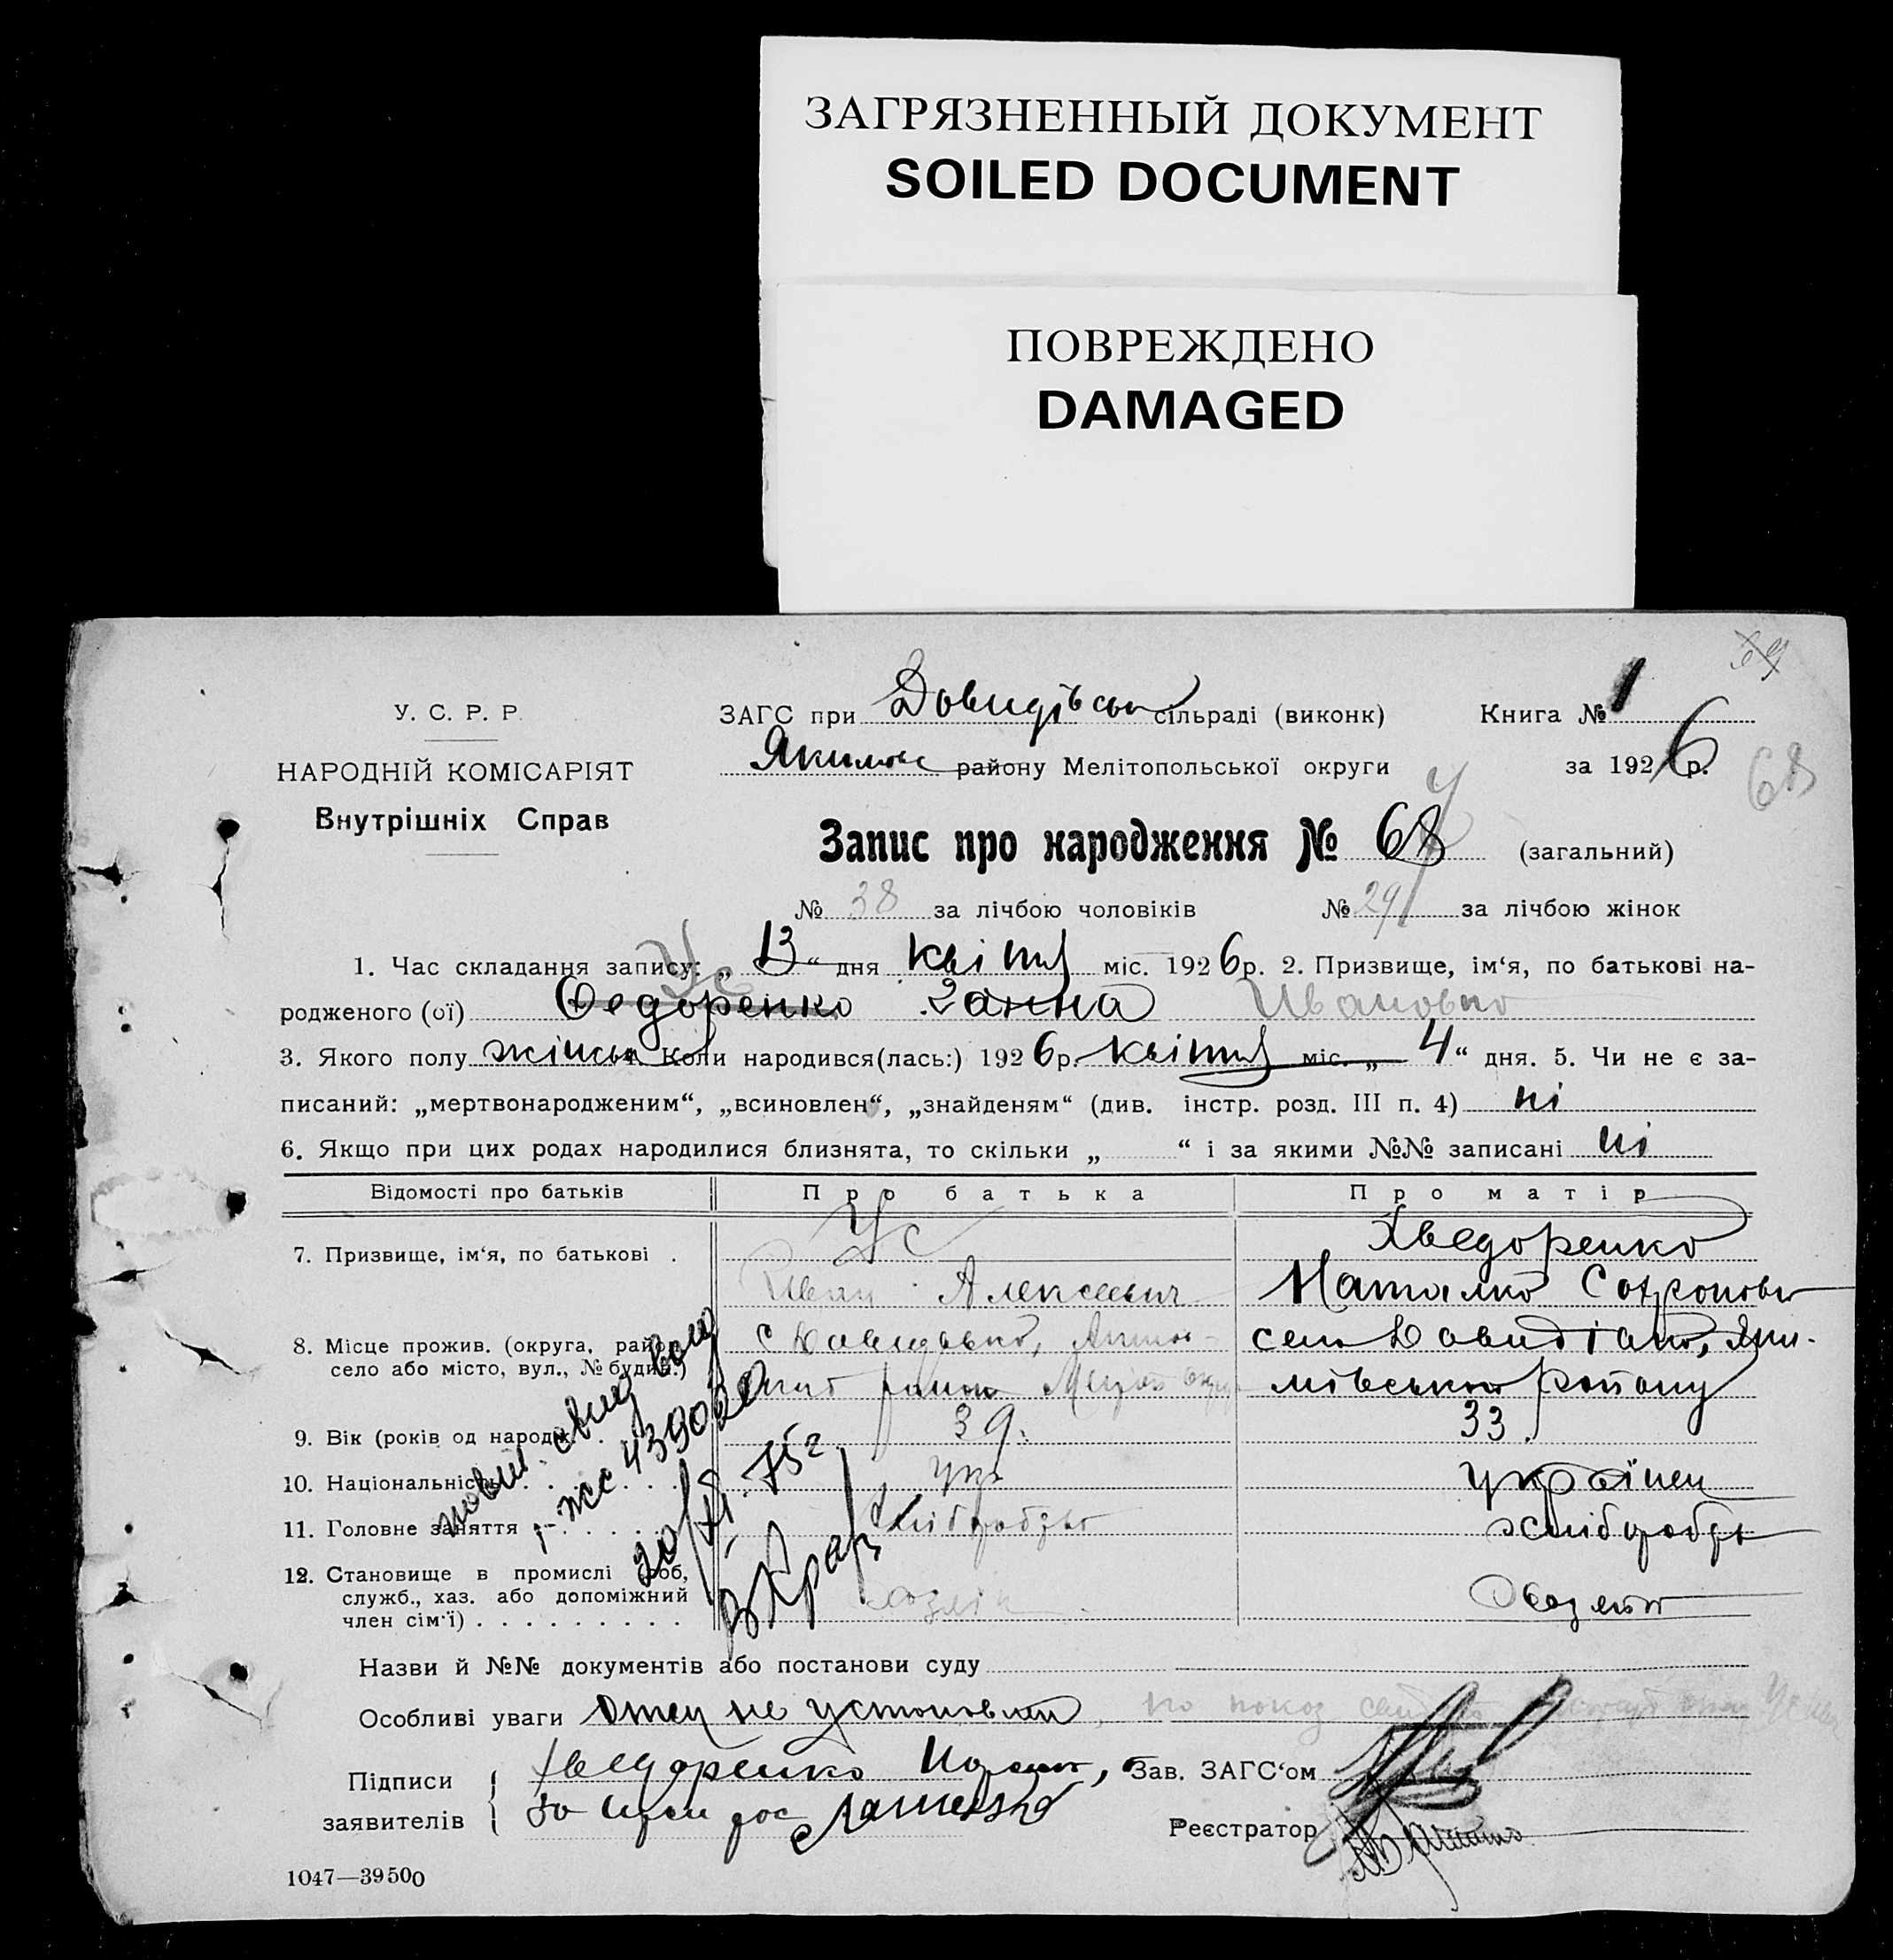 ЗАГРЯЗНЕННЫЙ ДОКУМЕНТ
SOILED DOCUMENT
ПОВРЕЖДЕНО
DAMAGED
У. С. Р. Р.
НАРОДНІЙ КОМІСАРІЯТ
Внутрішніх Справ
ЗАГС при Довидівськ сільраді (виконк) Книга № 1
Якимов району Мелітопольської округи за 1926 р.
68
Запис про народження № 68 (загальний)
№ 38 за лічбою чоловіків № 29 за лічбою жінок
Ус
1. Час складання запису: „ 13 “ дня квітня міс. 1926 р. 2. Призвище, ім‘я, по батькові на-
родженого (ої) Федоренко Ганна Ивановно
3. Якого полу жіноч 4. Коли народився(лась:) 1926 р. квітня міс. „ 4 “ дня. 5. Чи не є за-
писаний: „мертвонародженим“, „всиновлен“, „знайденям“ (див. інстр. розд. III п. 4) ні
6. Якщо при цих родах народилися близнята, то скільки „ “ і за якими №№ записані ні
Відомості про батьків Про батька Про матір
7. Призвище, ім‘я, по батькові . Ус Хведоренко
Иван Алексеевич Наталко Софронови
8. Місце прожив. (округа, район, село або місто, вул., № будин.) с Давидовко, село Давидівко, Яки-
район мівського району
9. Вік (років од народж. 39. 33.
10. Національність укр українец
11. Головне заняття хліборобство хлібороб
12. Становище в промислі (роб,
служб., хаз. або допоміжний
член сім‘ї) хазяін
повт. свид выд
жс 439020
20/XI-75г.
Назви й №№ документів або постанови суду
Особливі уваги Отец не установлен, по показ
Підписи заявителів Хведоренко Зав. ЗАГС‘ом
Реєстратор
1047—39500